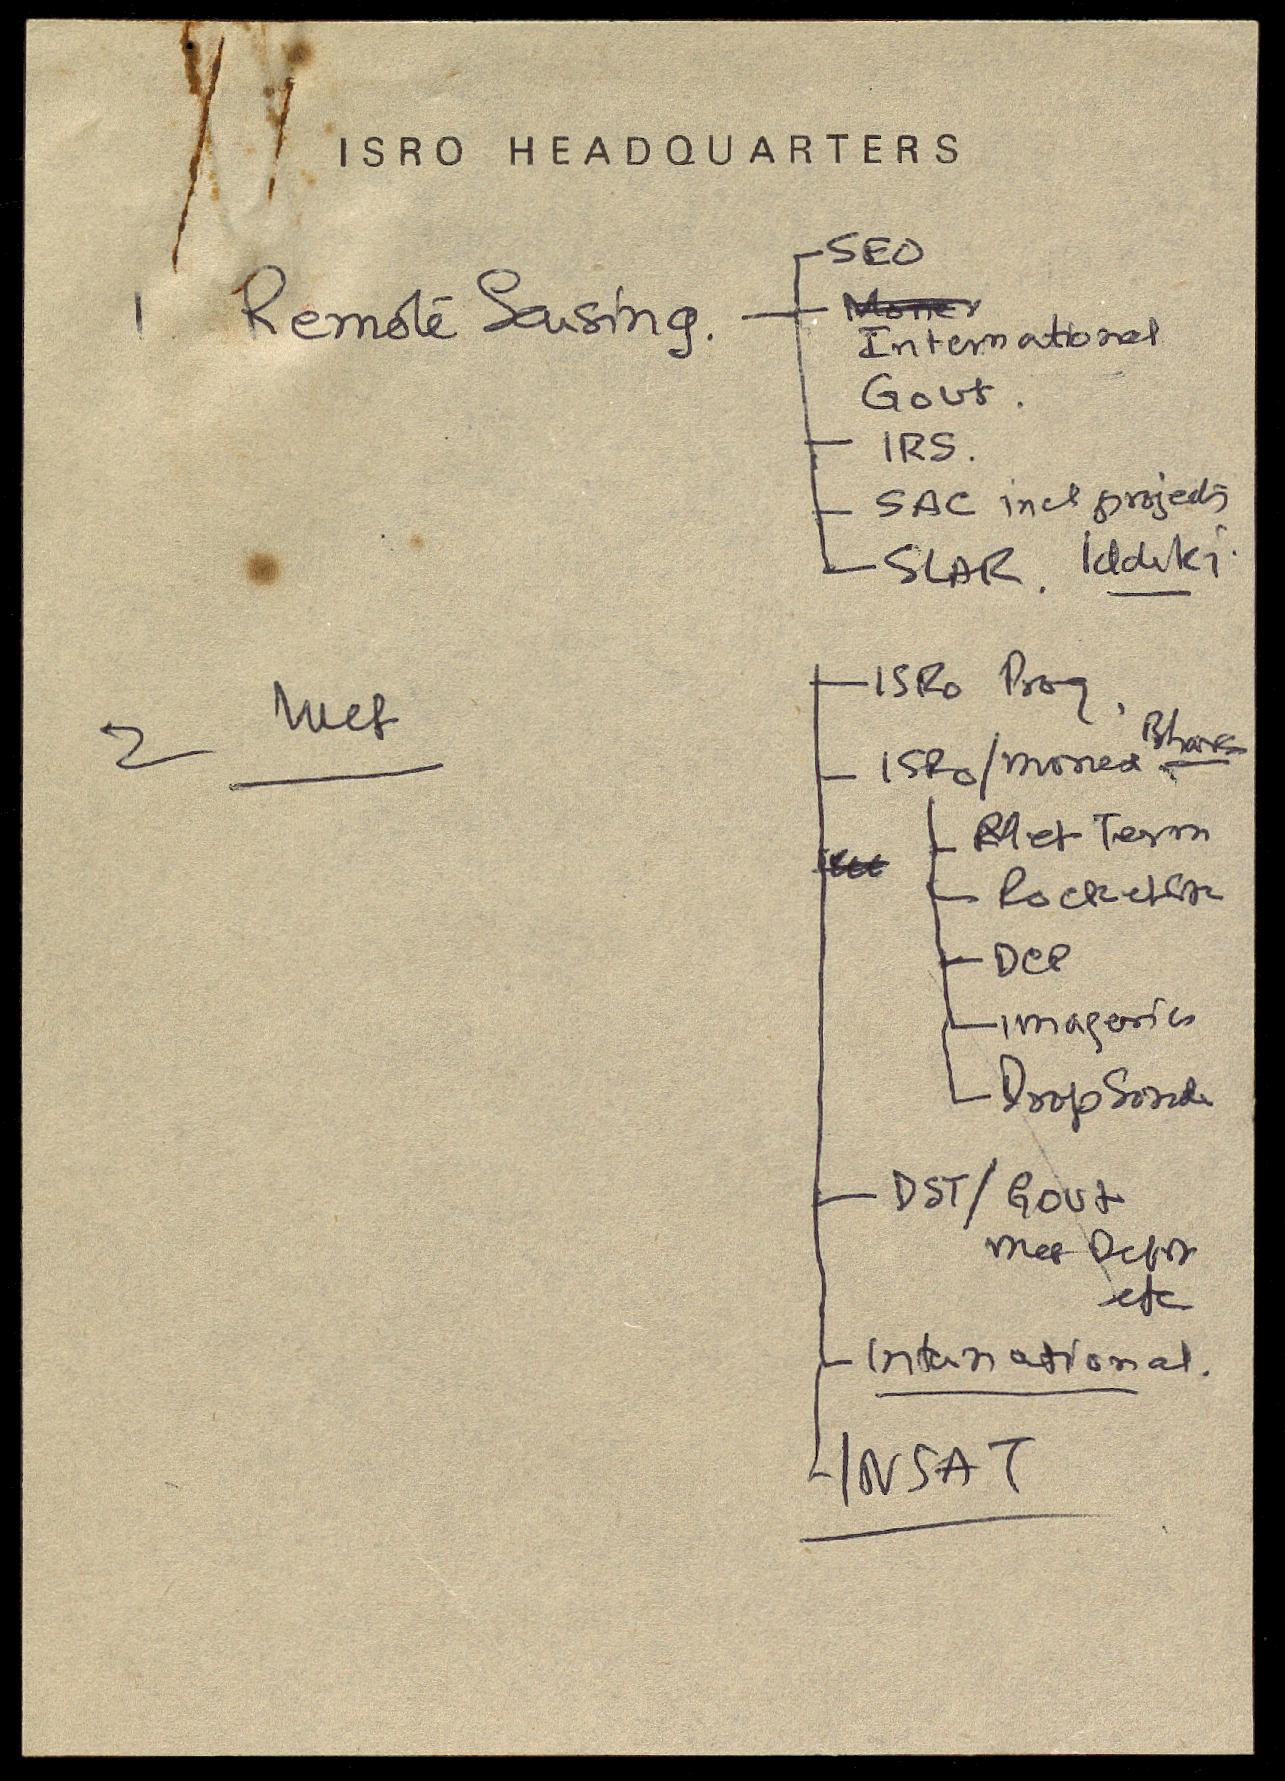 ISRO HEADQUARTERS
SEO
1 Remote Sensing.
International
Govt.
IRS.
SAC incl projects
SLAR. Iddiki
ISRO Prog,
2 Met
ISRO/Monex Bhars
Met Term
Rocketson
DCP
imageries
DropSonde
DST/Govt
Met Deptt
etc
International.
INSAT